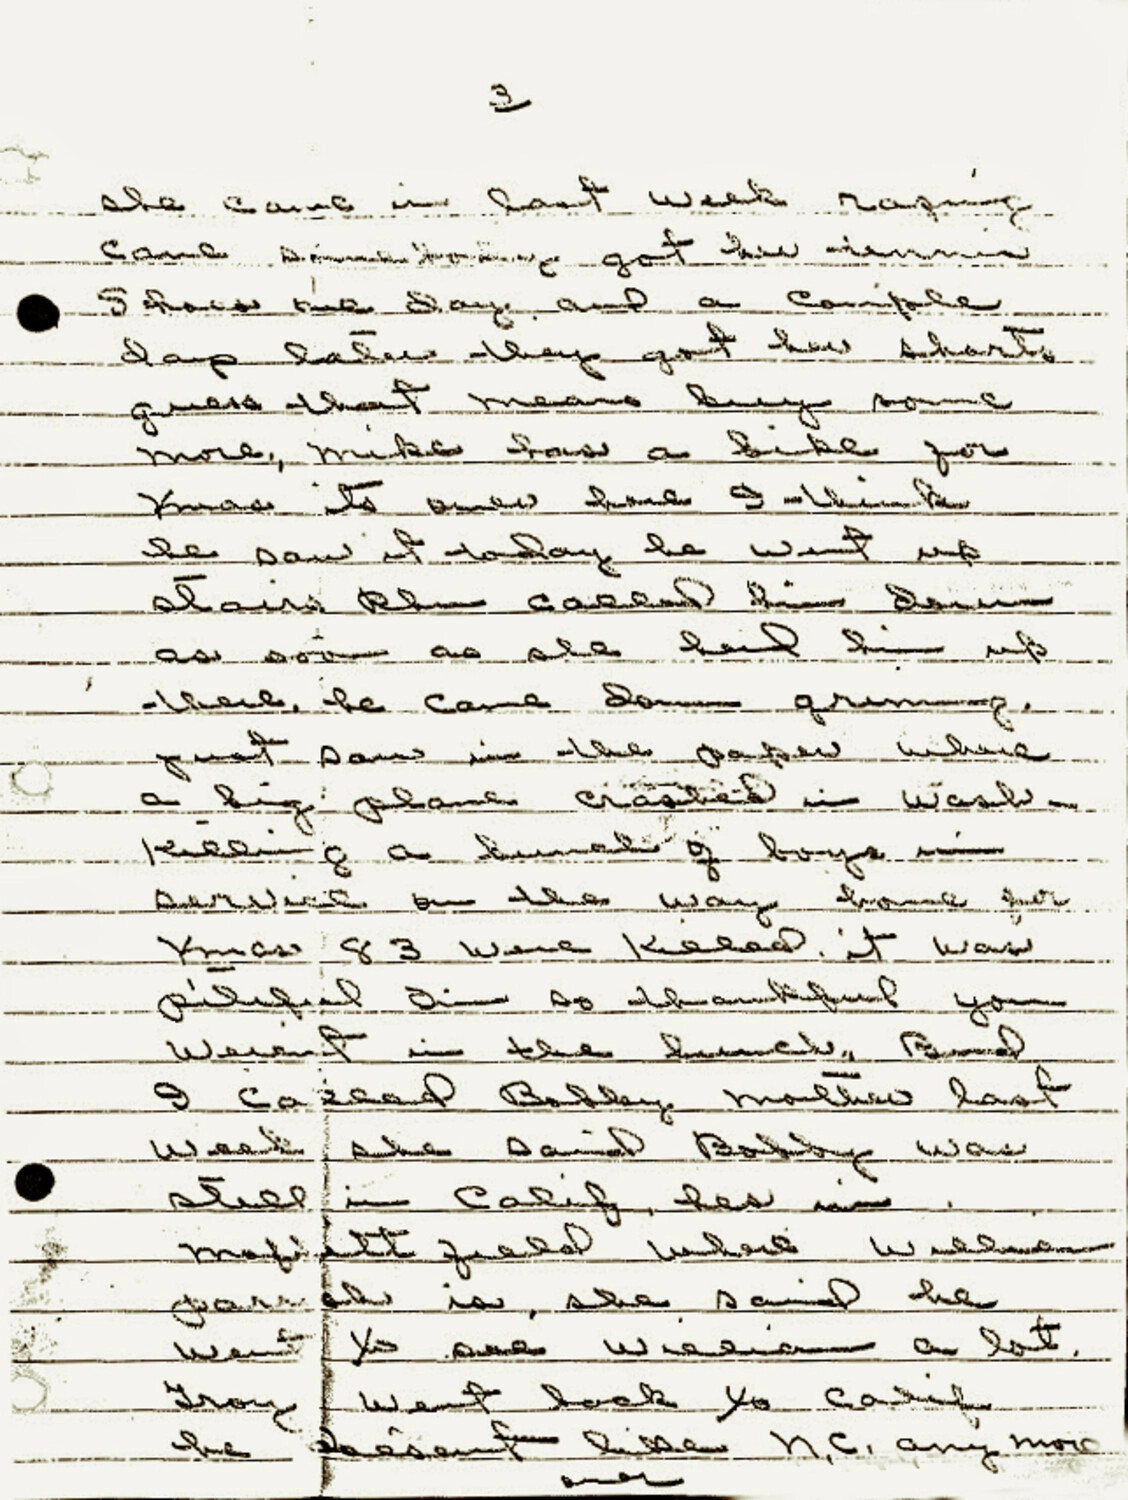 3
she came in last week raping
cane somebody got her tennis
Shoes one day and a couple
days later they got her shorts
guess that means buy some
more, Mike has a bike for
Xmas its over here I think
he saw it today he went up
stairs called him down
as soon as she herd him up
there, he came down grinning.
just saw in the paper where
a big plane crashed in Wash.
Killing a bunch of boys in
service on the way home for
Xmas 83 were Killed. it was
pitiful I'm so thankful you
weren't in the bunch, Bud
I called Bobby mother last
week she said Bobby was
still in Calif, hes in
Moffitt field where William
parrish is, she said he
went to see William a lot.
Troy went back to Calif
he doesent like N.C. any more
over